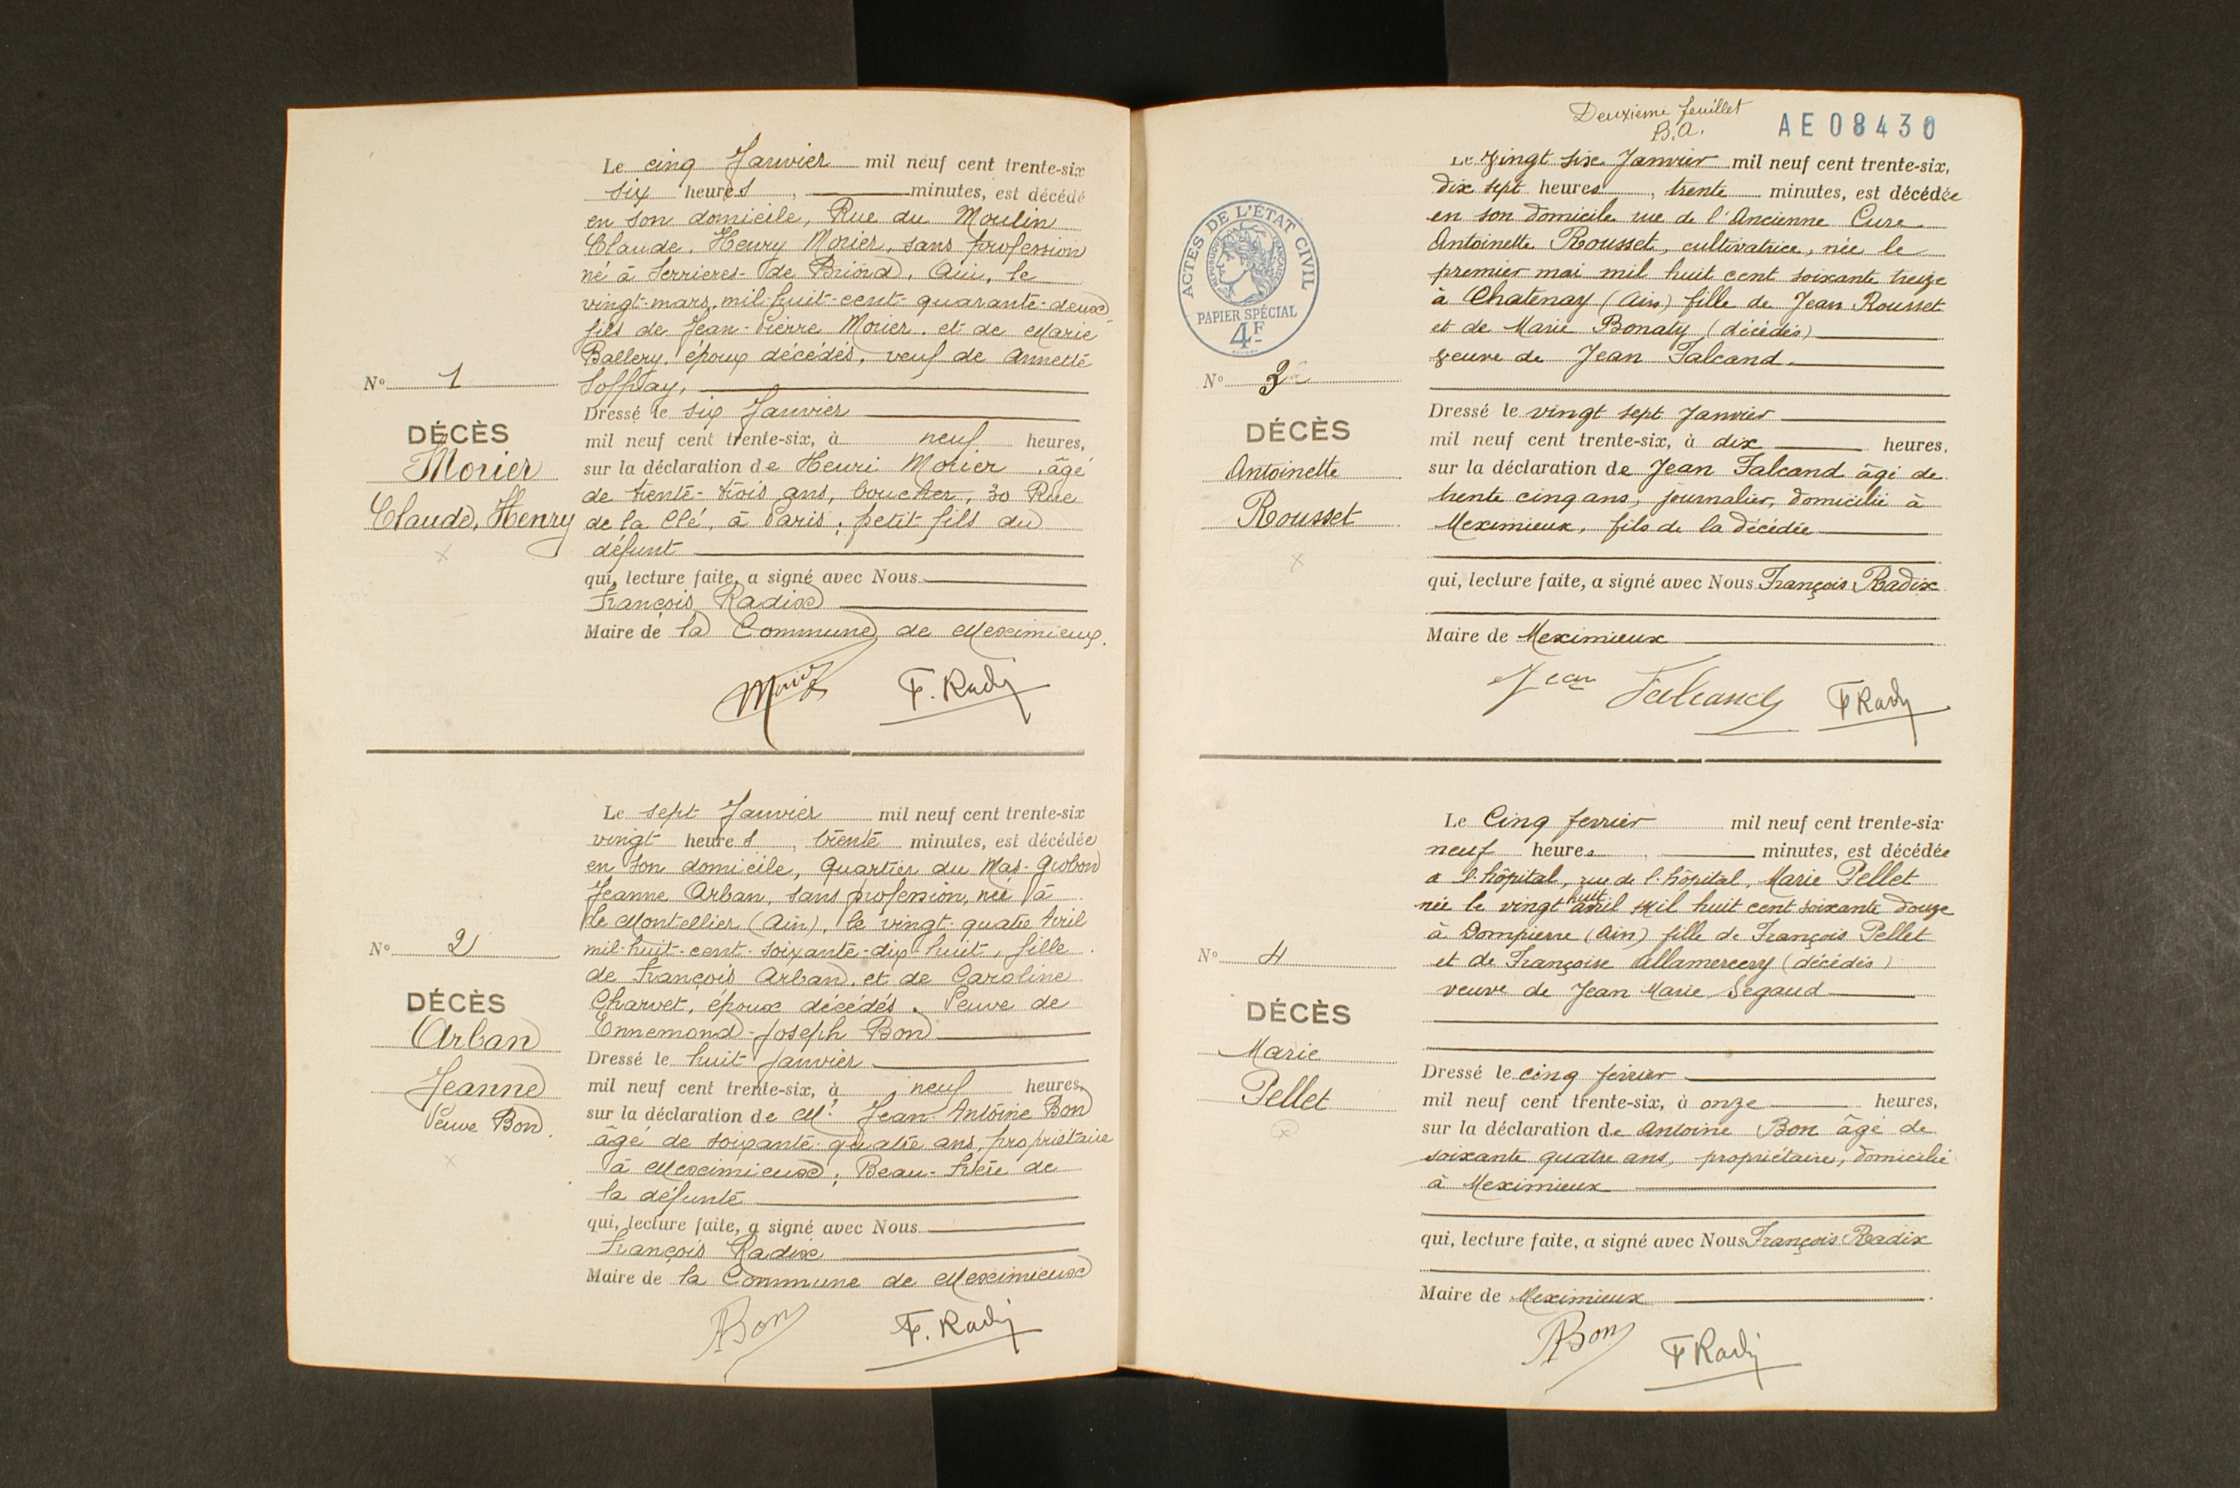 Le cinq Janvier mil neuf cent trente-six
six heures, minutes, est décédé
en son domicile, Rue du Moulin
Claude, Henry Morier, sans profession
né à Serrieres-de Briord, Ain, le
vingt-mars, mil-huit-cent-quarante-deux
fils de Jean-Pierre Morier, et de Marie
Ballery, époux décédés, veuf de Annette
Soffray,
Nº 1
DÉCÈS
Morier
Claude, Henry
Dressé le six Janvier
mil neuf cent trente-six, à neuf heures,
sur la déclaration de Henri Morier, âgé
de trente-trois ans, boucher, 30 Rue
de la Clé, à Paris, petit fils du
défunt
qui, lecture faite, a signé avec Nous
François Radix
Maire de la Commune de Meximieux.
F. Radix
Le sept Janvier mil neuf cent trente-six
vingt heures, trente minutes, est décédée
en son domicile, Quartier du Mas-Grobon
Jeanne Arban, sans profession, née à
le Montellier (Ain), le vingt-quatre Avril
mil-huit-cent-soixante-dix-huit, fille
de François Arban, et de Caroline
Charvet, époux décédés. Veuve de
Ennemond-Joseph Bon
Nº 2
DÉCÈS
Arban
Jeanne
Veuve Bon.
Dressé le huit Janvier
mil neuf cent trente-six, à neuf heures,
sur la déclaration de Mr Jean-Antoine Bon
âgé de soixante-quatre ans, propriétaire
à Meximieux, Beau-frère de
la défunte
qui, lecture faite, a signé avec Nous
François Radix
Maire de la Commune de Meximieux
ABon F. Radix
Deuxième feuillet
B.A.
AE08430
ACTES DE L'ÉTAT CIVIL
PAPIER SPÉCIAL
4F
Le vingt six Janvier mil neuf cent trente-six,
dix sept heures, trente minutes, est décédée
en son domicile rue de l'Ancienne Cure
Antoinette Rousset, cultivatrice, née le
premier mai mil huit cent soixante treize
à Chatenay (Ain) fille de Jean Rousset
et de Marie Bonaly (décédés)
veuve de Jean Falcand.
Nº 3
DÉCÈS
Antoinette
Rousset
Dressé le vingt sept Janvier
mil neuf cent trente-six, à dix heures,
sur la déclaration de Jean Falcand âgé de
trente cinq ans, journalier, domicilié à
Meximieux, fils de la décédée
qui, lecture faite, a signé avec Nous François Radix
Maire de Meximieux
Jean Falcand F Radix
Le Cinq fevrier mil neuf cent trente-six
neuf heures, minutes, est décédée
a l'hôpital, rue de l'hôpital, Marie Pellet
née le vingt huit avril mil huit cent soixante douze
à Dompierre (Ain) fille de François Pellet
et de Françoise Allamercery (décédés)
veuve de Jean Marie Segaud
Nº 4
DÉCÈS
Marie
Pellet
Dressé le cinq fevrier
mil neuf cent trente-six, à onze heures,
sur la déclaration de Antoine Bon âgé de
soixante quatre ans, propriétaire, domicilié
à Meximieux
qui, lecture faite, a signé avec Nous François Radix
Maire de Meximieux
ABon F Radix